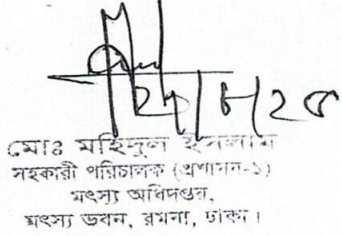 মোঃ মহিদুল ইসলাম
সহকারী পরিচালক (প্রশাসন-১)
মৎস্য অধিদপ্তর,
মৎস্য ভবন, রমনা, ঢাকা।